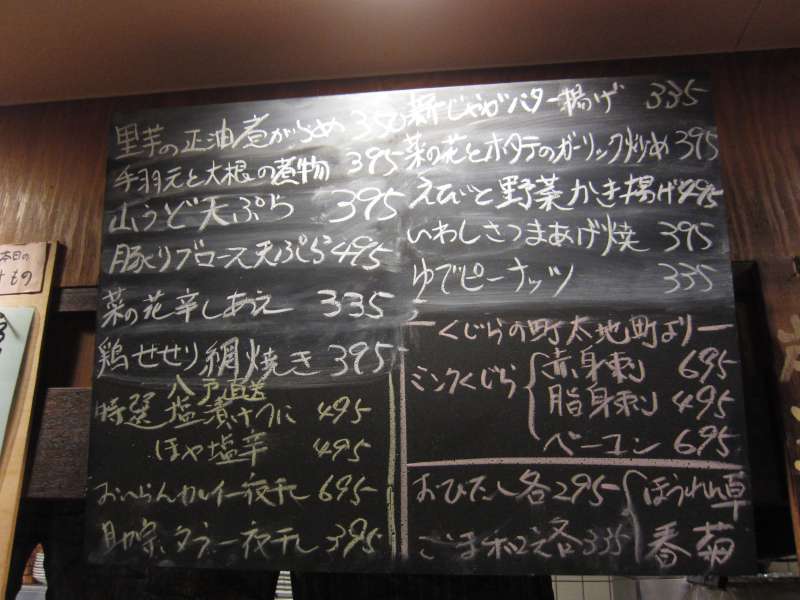 里芋の正油煮がらめ 350
手羽元と大根の煮物 395
山うど天ぷら 395
豚トリブロース天ぷら 495
菜の花辛しあえ 335
鶏せせり網焼き 395
八戸直送
特選 塩漬けうに 495
ほや塩辛 495
おいらんカレイ一夜干し 695
助宗タラ一夜干し 395
新じゃがバター揚げ 335
菜の花とホタテのガーリック炒め 395
えびと野菜かき揚げ 495
いわしさつまあげ焼 395
ゆでピーナッツ 335
ーくじらの町太地町よりー
ミンクくじら
赤身刺 695
脂身刺 495
ベーコン 695
おひたし各295
ごま和え各335
ほうれん草
春菊
本日の